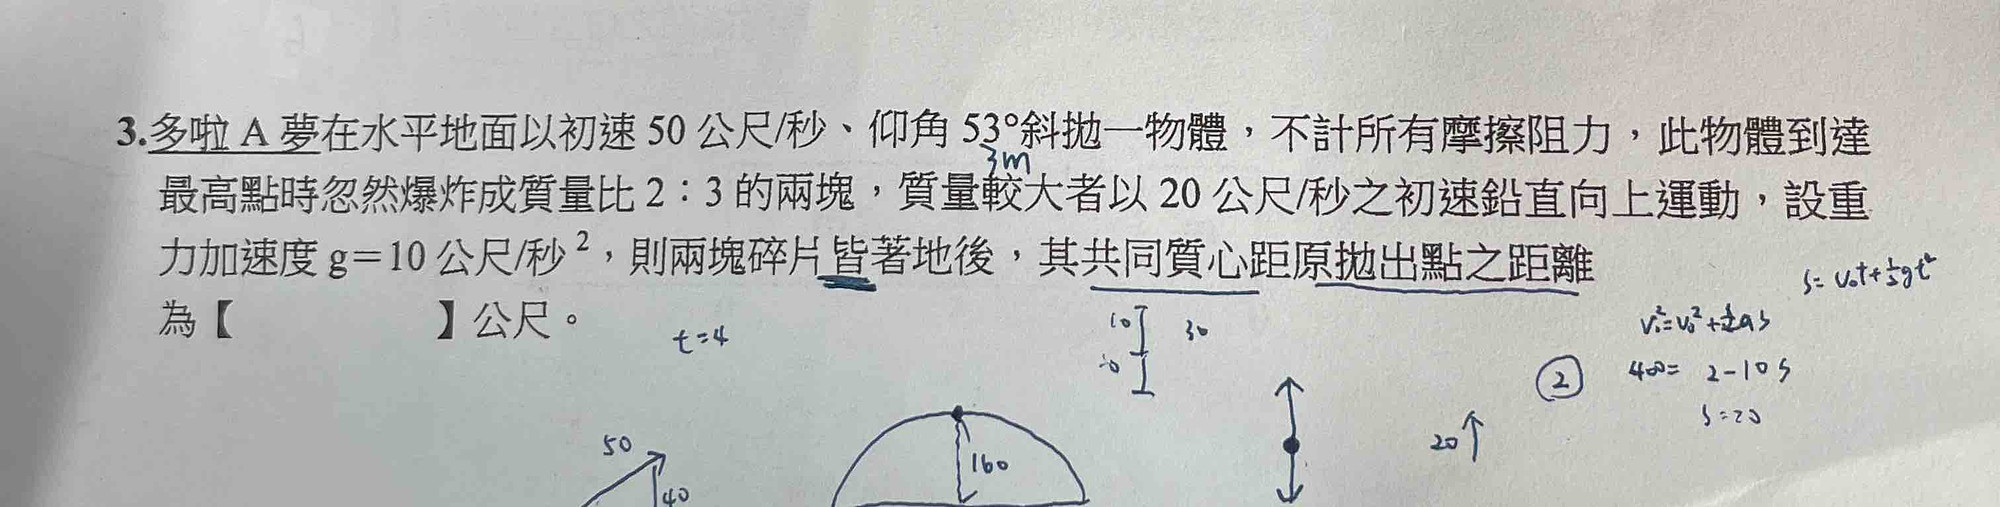 3.多啦 A 夢在水平地面以初速 50 公尺/秒、仰角 53°斜拋一物體，不計所有摩擦阻力，此物體到達
3m
最高點時忽然爆炸成質量比 2：3 的兩塊，質量較大者以 20 公尺/秒之初速鉛直向上運動，設重
力加速度 g＝10 公尺/秒²，則兩塊碎片皆著地後，其共同質心距原拋出點之距離
為【 】公尺。
t=4
10
30
S= V₀t+½gt²
400= 2-10S
S=20
②
20
50
40
160